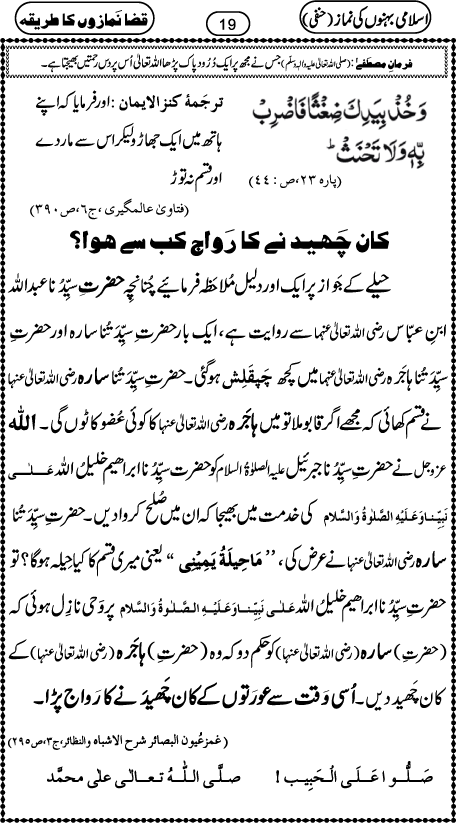 اسلامی بہنوں کی نماز (حنفی) 19 قضا نمازوں کا طریقہ
فرمانِ مصطفٰے: (صلی اللہ تعالیٰ علیہ والہٖ وسلّم) جس نے مجھ پر ایک دُرُود پاک پڑھا اللہ تعالیٰ اُس پر دس رحمتیں بھیجتا ہے۔
وَخُذْ بِیَدِكَ ضِغْثًا فَاضْرِبْ
بِّهٖ وَ لَا تَحْنَثْ ؕ
(پارہ ۲۳، ص: ۴۴)
ترجَمۂ کنز الایمان: اور فرمایا کہ اپنے
ہاتھ میں ایک جھاڑو لیکر اس سے مار دے
اور قسم نہ توڑ
(فتاویٰ عالمگیری، ج۶، ص۳۹۰)
کان چَھید نے کا رَواج کب سے ہوا؟
حیلے کے جَواز پر ایک اور دلیل مُلاحَظہ فرمائیے چُنانچِہ حضرتِ سیِّدُ نا عبداللہ
ابنِ عبّاس رضی اللہ تعالیٰ عنہما سے روایت ہے، ایک بار حضرتِ سیِّدَ تُنا سارہ اور حضرتِ
سیِّدَ تُنا ہاجَرہ رضی اللہ تعالیٰ عنہما میں کچھ چَپقَلِش ہو گئی۔ حضرتِ سیِّدَ تُنا سارہ رضی اللہ تعالیٰ عنہا
نے قسم کھائی کہ مجھے اگر قابو ملا تو میں ہاجَرہ رضی اللہ تعالیٰ عنہا کا کوئی عُضو کاٹوں گی۔ اللہ
عزوجل نے حضرتِ سیِّدُ نا جبرئیل علیہ الصلوٰۃ السلام کو حضرتِ سیِّدُ نا ابراھیم خلیلُ اللہ عَلٰی
نَبِیِّنا وَعَلَیْہِ الصَّلٰوۃُ وَالسَّلام کی خدمت میں بھیجا کہ ان میں صُلْح کروا دیں۔ حضرتِ سیِّدَ تُنا
سارہ رضی اللہ تعالیٰ عنہا نے عرض کی، ’’مَا حِیلَۃُ یَمِیْنِی‘‘ یعنی میری قسم کا کیا حِیلہ ہو گا؟ تو
حضرتِ سیِّدُ نا ابراھیم خلیلُ اللہ عَلٰی نَبِیِّنا وَعَلَیْہِ الصَّلٰوۃُ وَالسَّلام پر وَحْی نازِل ہوئی کہ
(حضرتِ) سارہ (رضی اللہ تعالیٰ عنہا) کو حکم دو کہ وہ (حضرتِ) ہاجَرہ (رضی اللہ تعالیٰ عنہا) کے
کان چَھید دیں۔ اُسی وَقت سے عورَتوں کے کان چَھیدَ نے کا رَواج پڑا۔
(غمزعُیون البصائر شرح الاشباہ والنظائر، ج۳، ص۲۹۵)
صَلُّوا عَلَی الْحَبِیب ! صلَّی اللّٰہُ تعالٰی علٰی محمَّد